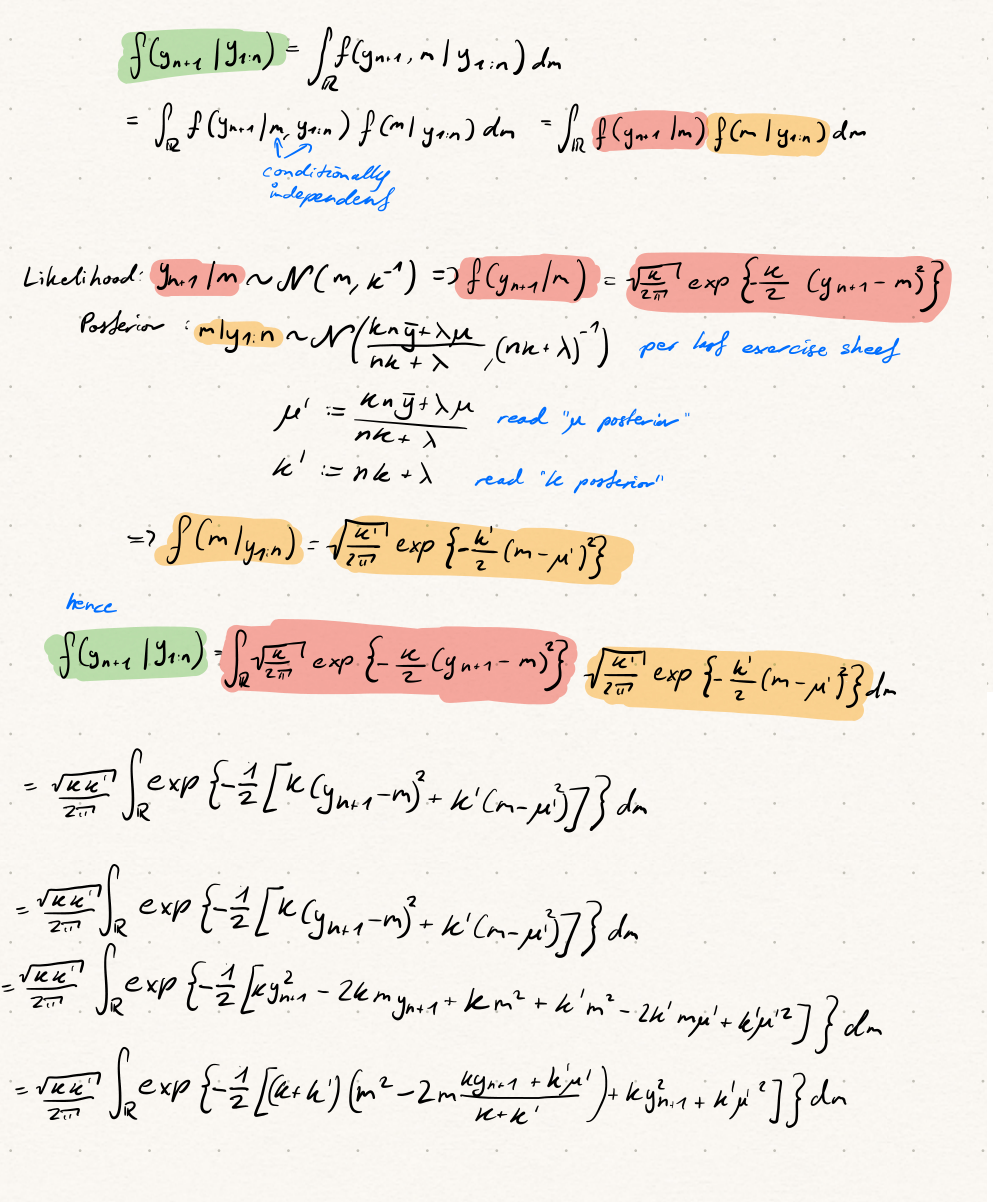 f(y_{n+1} | y_{1:n}) = ∫_ℝ f(y_{n+1}, m | y_{1:n}) dm
= ∫_ℝ f(y_{n+1} | m, y_{1:n}) f(m | y_{1:n}) dm = ∫_ℝ f(y_{n+1} | m) f(m | y_{1:n}) dm
conditionally
independent
Likelihood: y_{n+1} | m ~ N(m, κ^{-1}) => f(y_{n+1} | m) = √(κ/2π) exp {-κ/2 (y_{n+1} - m)^2}
Posterior : m | y_{1:n} ~ N((κnȳ + λμ)/(nκ + λ), (nκ + λ)^{-1}) per last exercise sheet
μ' := (κnȳ + λμ)/(nκ + λ) read "μ posterior"
κ' := nκ + λ read "κ posterior"
=> f(m | y_{1:n}) = √(κ'/2π) exp {-κ'/2 (m - μ')^2}
hence
f(y_{n+1} | y_{1:n}) = ∫_ℝ √(κ/2π) exp {-κ/2 (y_{n+1} - m)^2} √(κ'/2π) exp {-κ'/2 (m - μ')^2} dm
= √(κκ')/2π ∫_ℝ exp {-1/2 [κ(y_{n+1} - m)^2 + κ'(m - μ')^2]} dm
= √(κκ')/2π ∫_ℝ exp {-1/2 [κ(y_{n+1} - m)^2 + κ'(m - μ')^2]} dm
= √(κκ')/2π ∫_ℝ exp {-1/2 [κy_{n+1}^2 - 2κmy_{n+1} + κm^2 + κ'm^2 - 2κ'mμ' + κ'μ'^2]} dm
= √(κκ')/2π ∫_ℝ exp {-1/2 [(κ+κ') (m^2 - 2m (κy_{n+1} + κ'μ')/(κ+κ')) + κy_{n+1}^2 + κ'μ'^2]} dm